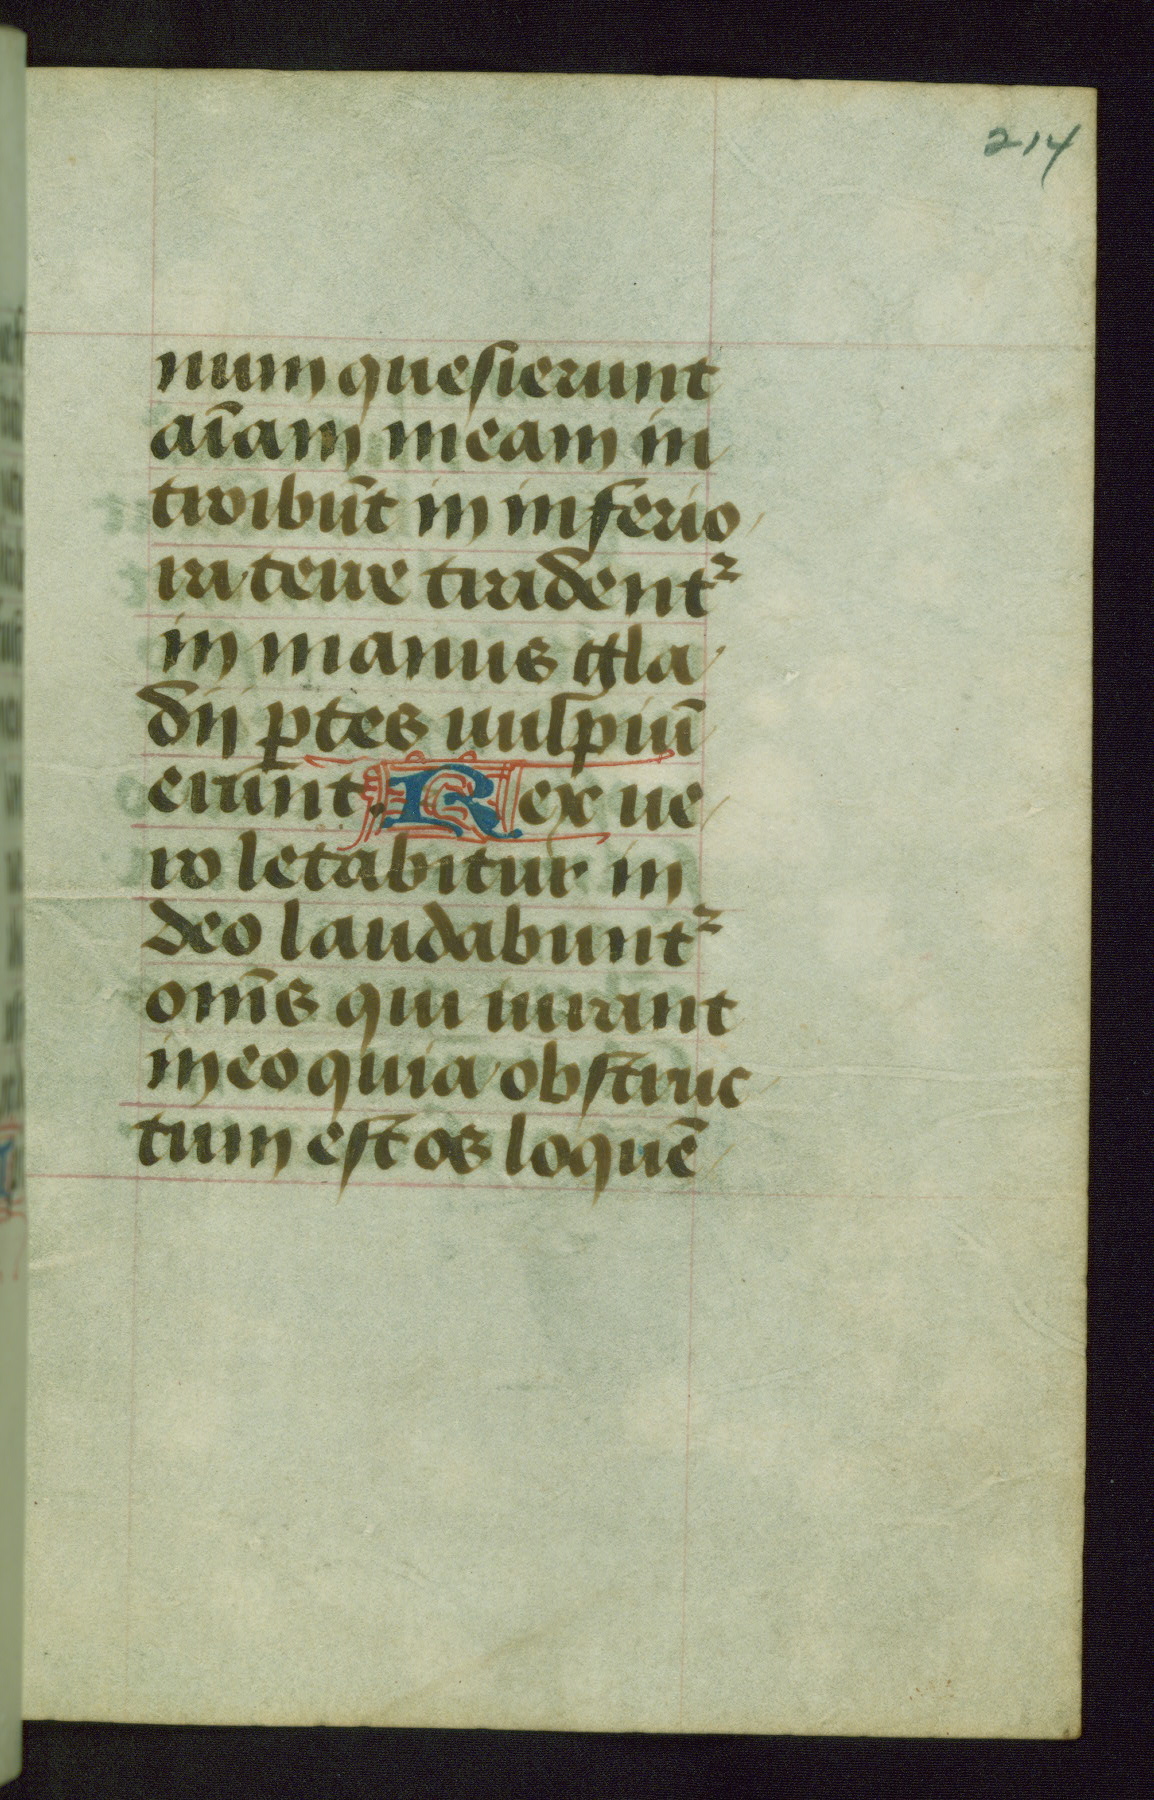 214
num quesierunt
aīam meam in
troibūt in inferio
ra terre tradentᷣ
in manus gla
dij ꝑtes uulpiū
erunt. Rex ue
ro letabitur in
deo laudabuntᷣ
om̄s qui iurant
in eo quia obstruc
tum est os loquē